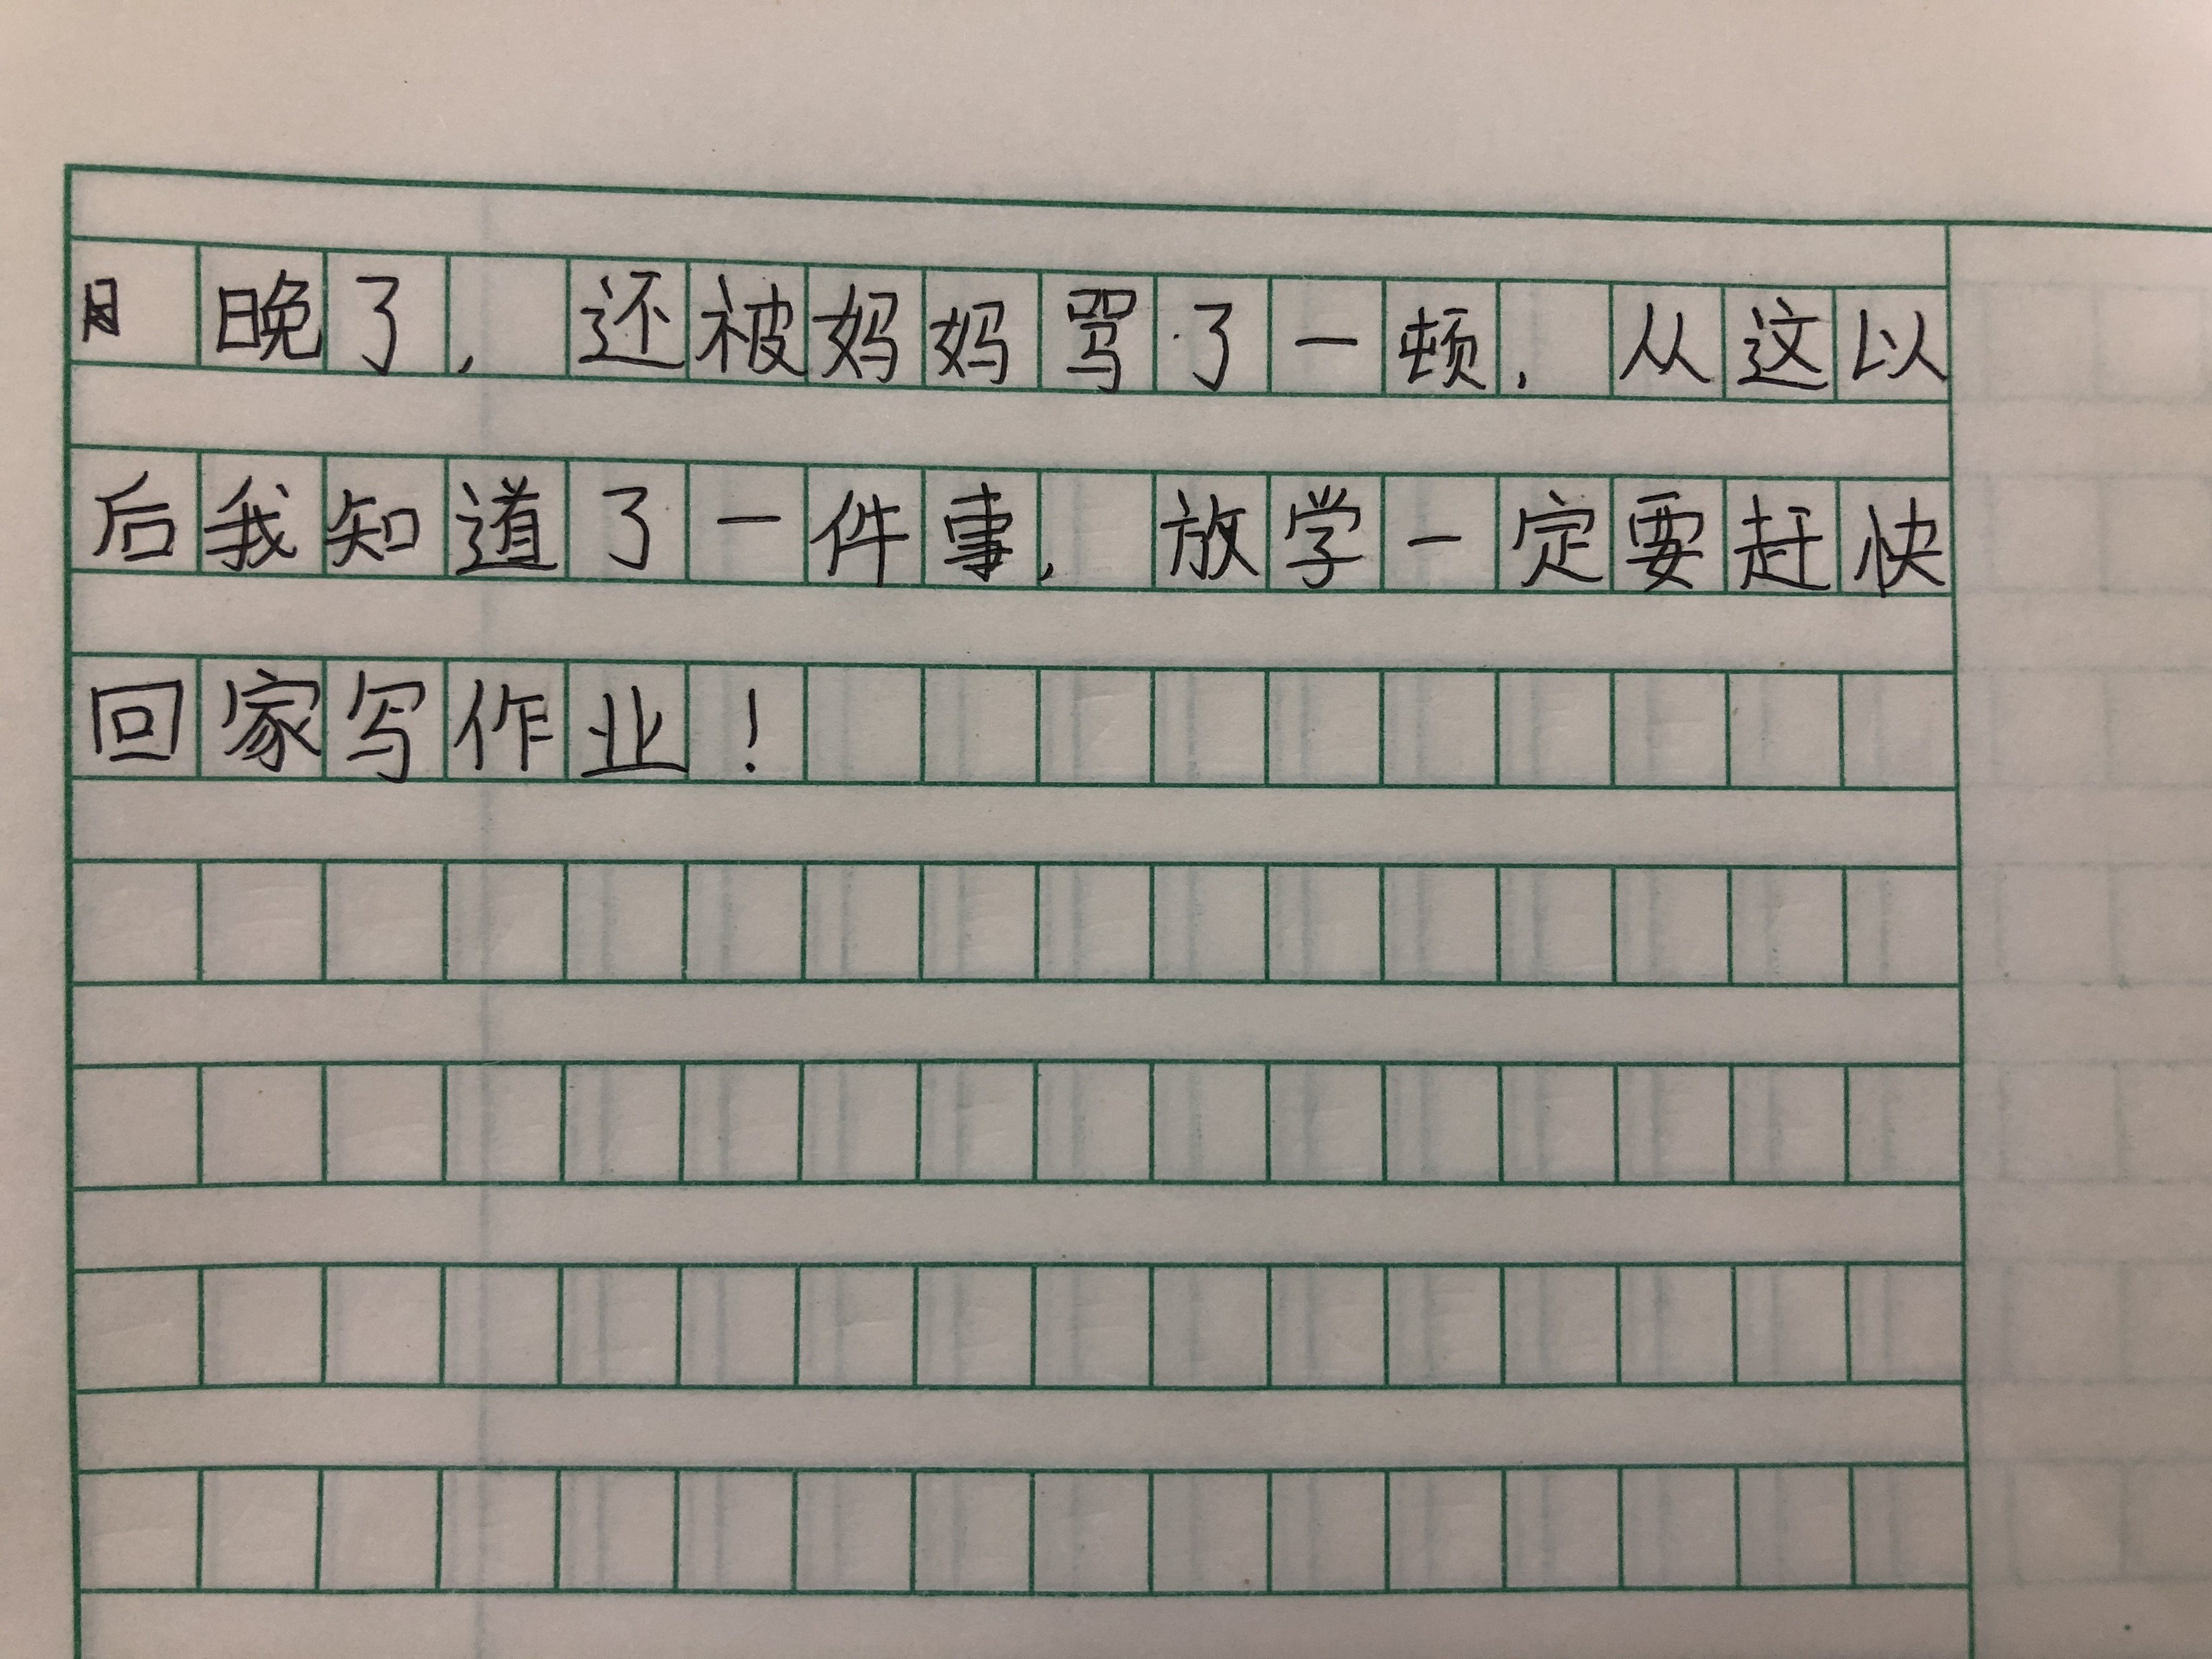 晚了，还被妈妈骂了一顿，从这以
后我知道了一件事，放学一定要赶快
回家写作业！